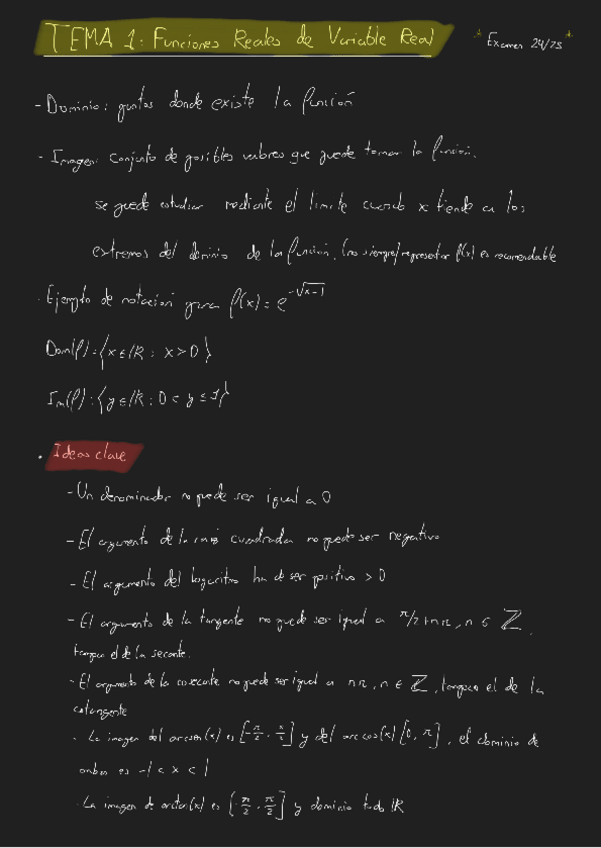 TEMA 1: Funciones Reales de Variable Real
* Examen 24/25 *
- Dominio: puntos donde existe la función
- Imagen: conjunto de posibles valores que puede tomar la función.
se puede estudiar mediante el límite cuando x tiende a los
extremos del dominio de la función. (no siempre) representar f(x) es recomendable
· Ejemplo de notación para f(x) = e^{-√(x-1)}
Dom(f): {x ∈ ℝ : x > 0}
Im(f): {y ∈ ℝ : 0 < y ≤ 1}
· Ideas clave
- Un denominador no puede ser igual a 0
- El argumento de la raíz cuadrada no puede ser negativo
- El argumento del logaritmo ha de ser positivo > 0
- El argumento de la tangente no puede ser igual a π/2 + nπ, n ∈ ℤ,
tampoco el de la secante.
- El argumento de la cosecante no puede ser igual a nπ, n ∈ ℤ, tampoco el de la
cotangente
· La imagen del arcsen(x) es [-π/2, π/2] y del arccos(x) [0, π], el dominio de
ambos es -1 < x < 1
· La imagen de arctan(x) es [-π/2, π/2] y dominio todo ℝ